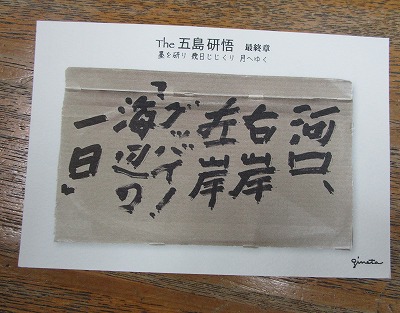 The 五島研悟 最終章
墨を研り 幾日じじくり 月へゆく
河口、
右岸
左岸
「グバイノ
海辺の
一日」
ginata